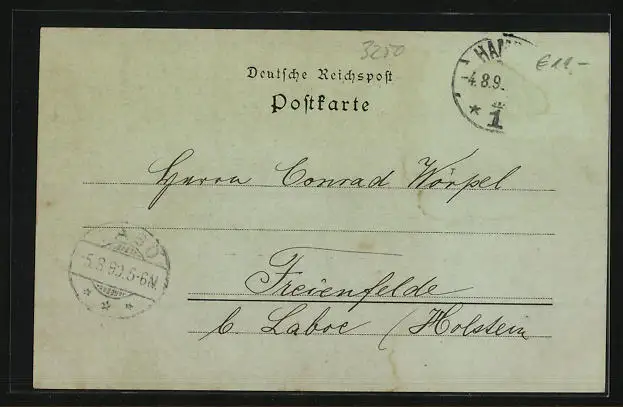 3250
HAM
4.8.9.
* 1
€ 12.-
Deutsche Reichspost
Postkarte
Herrn Conrad Wörpel
5.8.99.5-6N.
Freienfelde
b. Laboe /Holstein